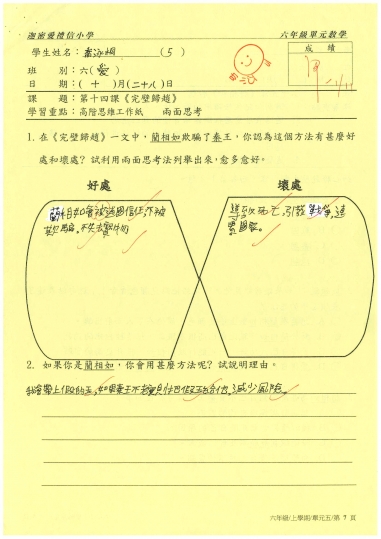 迦密愛禮信小學 六年級單元教學
學生姓名： (5) 成績
班 別：六(愛)
日 期：(十)月(二十八)日
課 題：第十四課《完璧歸趙》
學習重點：高階思維工作紙 兩面思考
1. 在《完璧歸趙》一文中，藺相如欺騙了秦王，你認為這個方法有甚麼好
處和壞處？試利用兩面思考法列舉出來，愈多愈好。
好處 壞處
藺相如 被 國信任,不被 導致死亡,引發戰爭,連
累國家。
2. 如果你是藺相如，你會用甚麼方法呢？試說明理由。
我會帶上假的玉,如果秦王不 減少風險。
六年級/上學期/單元五/第 7 頁